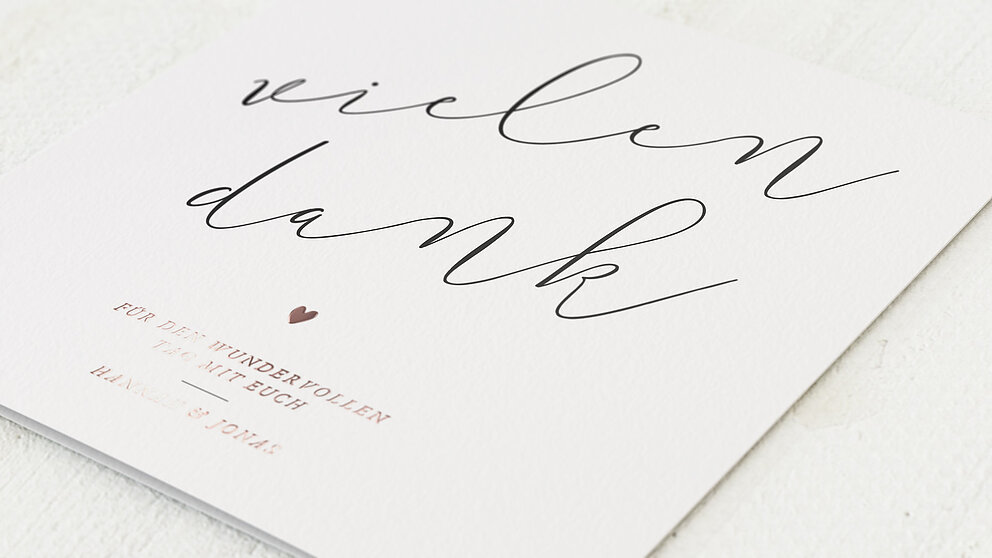 vielen
dank
FÜR DEN WUNDERVOLLEN
TAG MIT EUCH
& JONAS